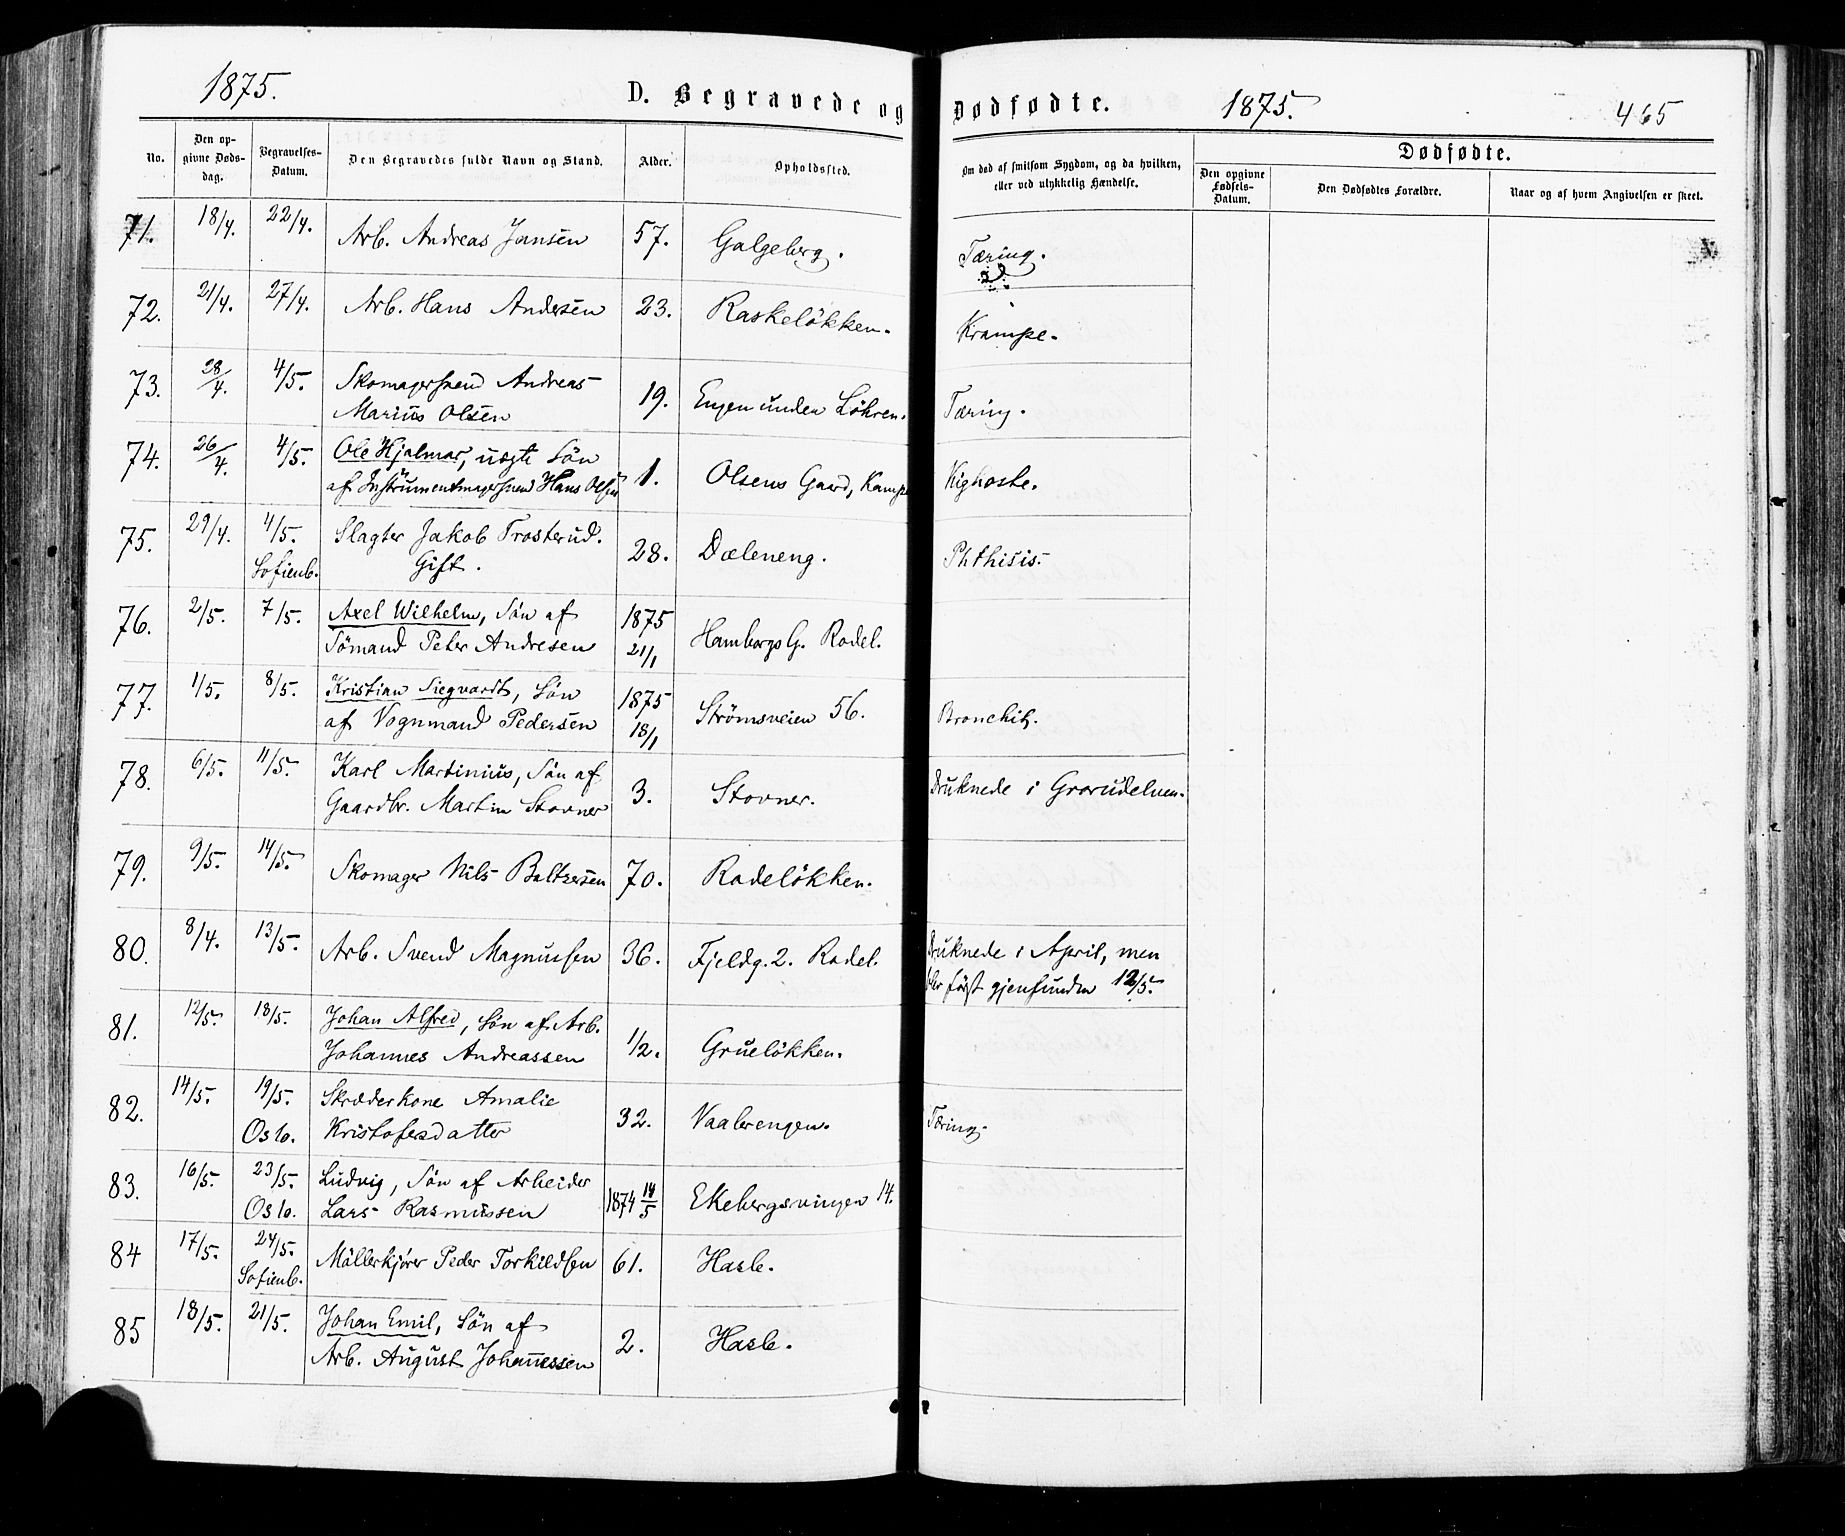 1875.
D. Begravede og Dødfødte.
1875.
465
No.
Den opgivne Døds-dag.
Begravelses-Datum.
Den Begravedes fulde Navn og Stand.
Alder.
Opholdssted.
Om død af smitsom Sygdom, og da hvilken, eller ved ulykkelig Hændelse.
Dødfødte.
Den opgivne Fødsels-Datum.
Den Dødfødtes Forældre.
Naar og af hvem Angivelsen er skeet.
71. 18/4. 22/4. Arb. Andreas Jansen 57. Galgeberg. Tæring.
72. 21/4. 27/4. Arb. Hans Andersen 23. Raskeløkken. Krampe.
73. 28/4. 4/5. Skomagersvend Andreas 19. Engen under Løhren. Tæring.
Marius Olsen
74. 26/4. 4/5. Ole Hjalmar, uægte Søn 1. Olsens Gaard, Kampe Kighoste.
af Instrumentmagersvend Hans Olsen
75. 29/4. 4/5. Slagter Jakob Trosterud. 28. Dæleneng. Phthisis.
Sofienb. Gift.
76. 2/5. 7/5. Axel Wilhelm, Søn af 1875 Hamborgs G. Rodel.
Sømand Peter Andresen 21/1
77. 1/5. 8/5. Kristian Siegvardt, Søn 1875 Strömsveien 56. Bronchit.
af Vognmand Pedersen 18/1
78. 6/5. 11/5. Karl Martinius, Søn af 3. Stovner. Druknede i Grorudelven.
Gaardbr. Martin Stovner
79. 9/5. 14/5. Skomager Nils Baltzersen 70. Rodeløkken.
80. 8/4. 13/5. Arb. Svend Magnussen 36. Fjeldg. 2. Rodel. Druknede i April, men
blev først gjenfunden 12/5.
81. 12/5. 18/5. Johan Alfred, Søn af Arb. 1/2. Grueløkken.
Johannes Andreassen
82. 14/5. 19/5. Skræderkone Amalie 32. Vaalerengen. Tæring.
Oslo. Kristofersdatter
83. 16/5. 23/5. Ludvig, Søn af Arbeider 1874 14/5 Ekebergsvingen 14.
Oslo. Lars Rasmussen
84 17/5. 24/5. Møllerkjører Peder Torkildsen 61. Hasle.
Sofienb.
85 18/5. 21/5. Johan Emil, Søn af 2. Hasle.
Arb. August Johannessen